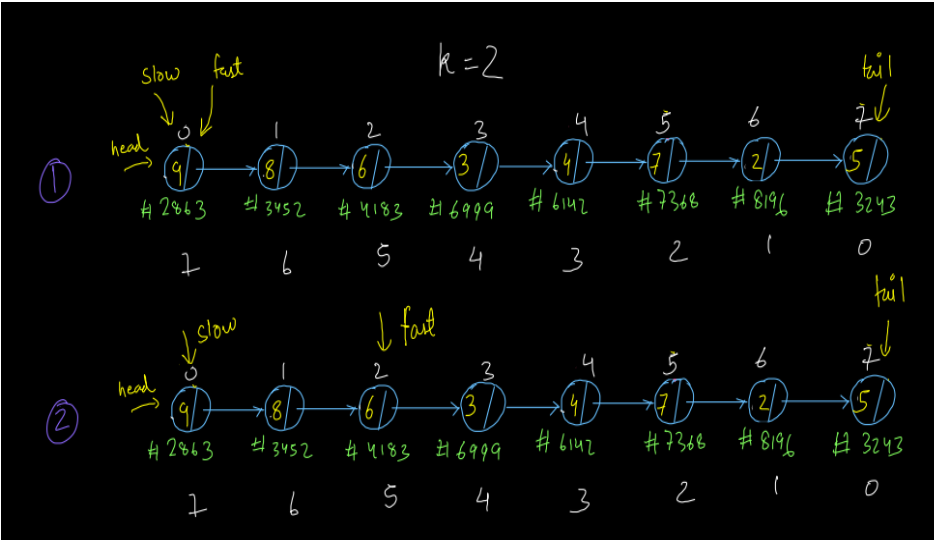 k=2
slow fast tail
0 1 2 3 4 5 6 7
head
1 9 8 6 3 4 7 2 5
#2863 #3452 #4183 #6999 #6142 #7368 #8196 #3243
7 6 5 4 3 2 1 0
slow fast tail
0 1 2 3 4 5 6 7
head
2 9 8 6 3 4 7 2 5
#2863 #3452 #4183 #6999 #6142 #7368 #8196 #3243
7 6 5 4 3 2 1 0